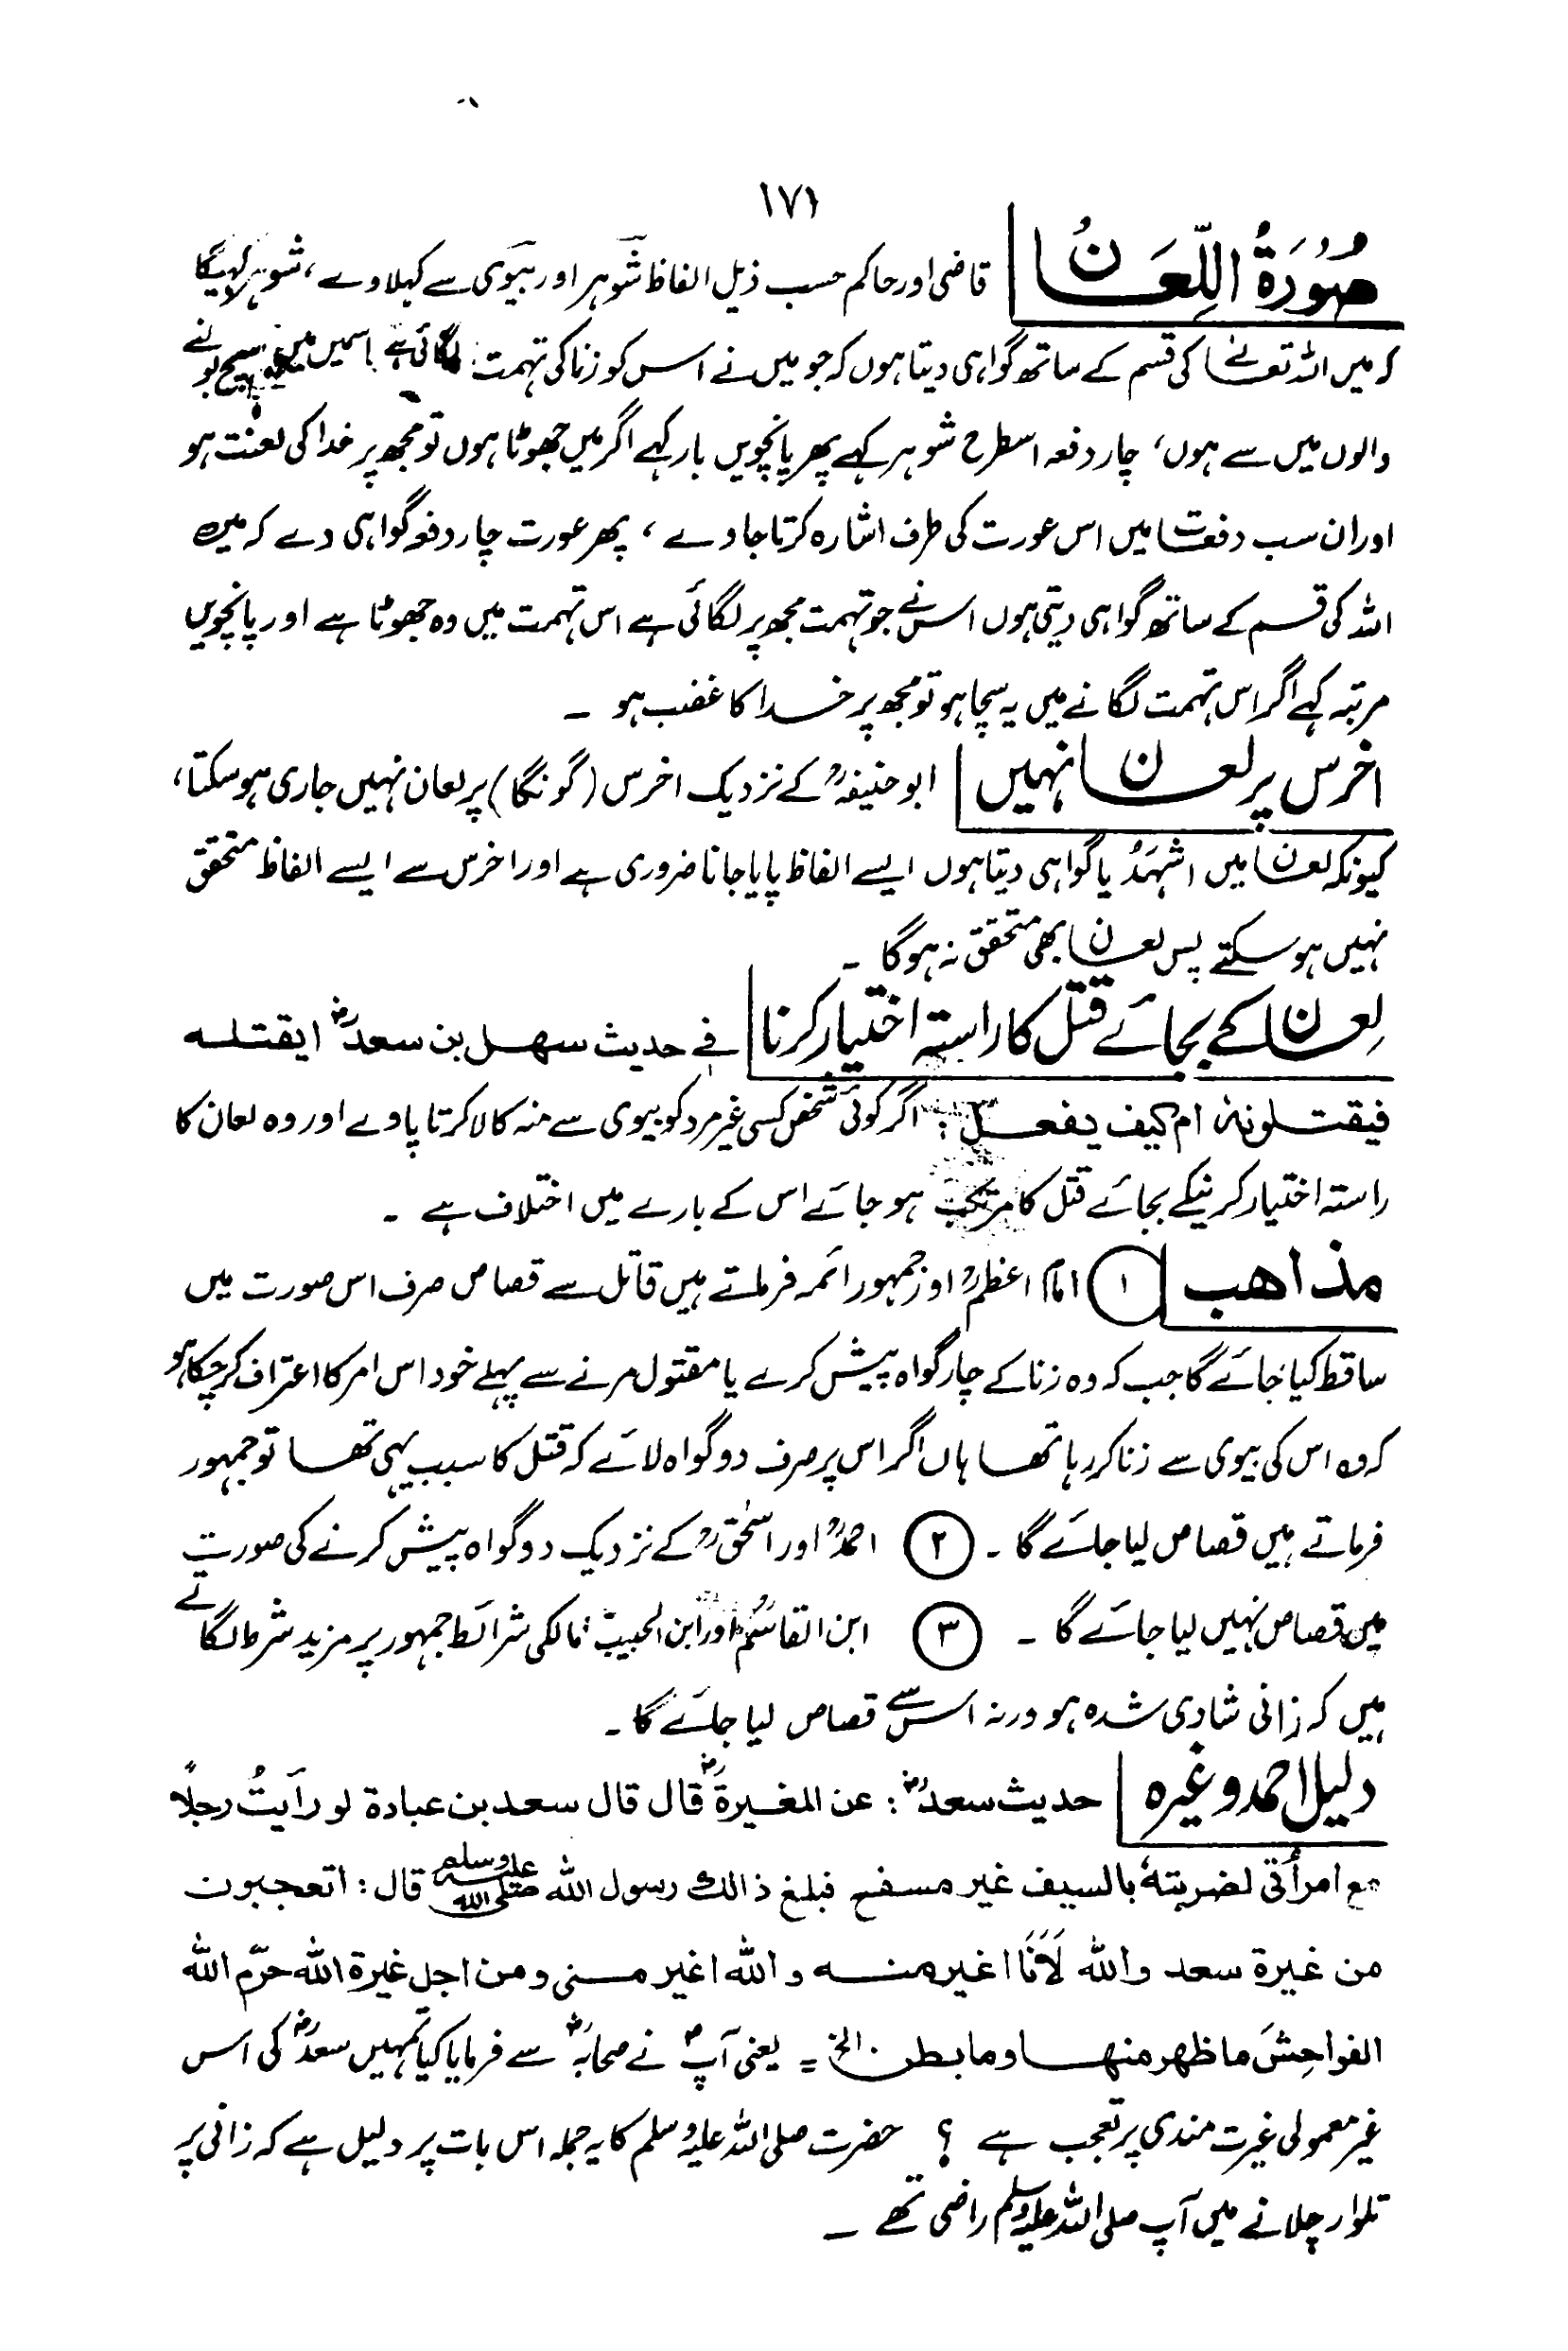 ١٧١
صُوْرَةُ اللِّعَانُ قاضی اور حاکم حسب ذیل الفاظ شوہر اور بیوی سے کہلاوے، شوہر کہیگا
کہ میں اللہ تعالیٰ کی قسم کے ساتھ گواہی دیتا ہوں کہ جو میں نے اس کو زنا کی تہمت لگائی ہے اسمیں میں سچ بولنے
والوں میں سے ہوں، چار دفعہ اسطرح شوہر کہے پھر پانچویں بار کہے اگر میں جھوٹا ہوں تو مجھ پر خدا کی لعنت ہو
اور ان سب دفعات میں اس عورت کی طرف اشارہ کرتا جاوے، پھر عورت چار دفعہ گواہی دے کہ میں
اللہ کی قسم کے ساتھ گواہی دیتی ہوں اس نے جو تہمت مجھ پر لگائی ہے اس تہمت میں وہ جھوٹا ہے اور پانچویں
مرتبہ کہے اگر اس تہمت لگانے میں یہ سچا ہو تو مجھ پر خدا کا غضب ہو ۔
اخرس پر لعان نہیں ابو حنیفہؒ کے نزدیک اخرس (گونگا) پر لعان نہیں جاری ہو سکتا،
کیونکہ لعان میں اشہَدُ یا گواہی دیتا ہوں ایسے الفاظ پایا جانا ضروری ہے اور اخرس سے ایسے الفاظ متحقق
نہیں ہو سکتے پس لعان بھی متحقق نہ ہوگا ۔
لِعان کے بجائے قتل کا راستہ اختیار کرنا فی حدیث سهل بن سعدؓ ایقتله
فیقتلونهٗ ام کیف یفعل: اگر کوئی شخص کسی غیر مرد کو بیوی سے منہ کالا کرتا پاوے اور وہ لعان کا
راستہ اختیار کرنیکے بجائے قتل کا مرتکب ہو جائے اس کے بارے میں اختلاف ہے ۔
مذاهب ① امام اعظمؒ اور جمہور ائمہ فرماتے ہیں قاتل سے قصاص صرف اس صورت میں
ساقط کیا جائے گا جب کہ وہ زنا کے چار گواہ پیش کرے یا مقتول مرنے سے پہلے خود اس امر کا اعتراف کر چکا ہو
کہ وہ اس کی بیوی سے زنا کر رہا تھا ہاں اگر اس پر صرف دو گواہ لائے کہ قتل کا سبب یہی تھا تو جمہور
فرماتے ہیں قصاص لیا جائے گا ۔ ② احمدؒ اور اسحٰقؒ کے نزدیک دو گواہ پیش کرنے کی صورت
میں قصاص نہیں لیا جائے گا ۔ ③ ابن القاسمؒ اور ابن الحبیبؒ مالکی شرائط جمہور پر مزید شرط لگاتے
ہیں کہ زانی شادی شدہ ہو ورنہ اس سے قصاص لیا جائے گا ۔
دلیل احمد وغیرہ حدیث سعدؓ : عن المغیرةؓ قال قال سعد بن عبادة لو رأیتُ رجلاً
مع امرأتی لضربتهٗ بالسیف غیر مسفح فبلغ ذالك رسول الله صلی الله علیه وسلم قال: اتعجبون
من غیرة سعد والله لَاَنَا اغیر منه و الله اغیر منی ومن اجل غیرة الله حرّم الله
الفواحِشَ ما ظهر منها وما بطن الخ = یعنی آپؐ نے صحابہؓ سے فرمایا کیا تمہیں سعدؓ کی اس
غیر معمولی غیرت مندی پر تعجب ہے ؟ حضرت صلی اللہ علیہ وسلم کا یہ جملہ اس بات پر دلیل ہے کہ زانی پر
تلوار چلانے میں آپ صلی اللہ علیہ وسلم راضی تھے ۔